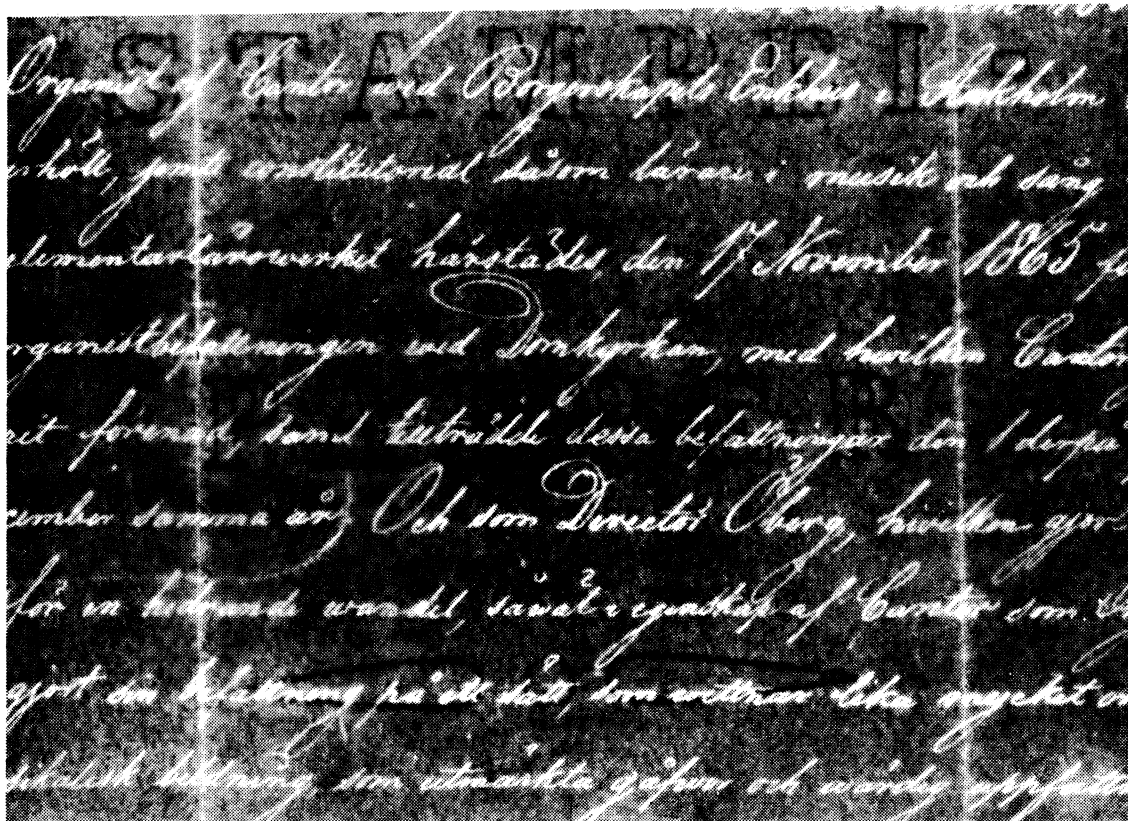 STÄMPEL
Organist och Cantor wid Borgerskapets Enkhus i Stockholm
hölt, samt constitutorial såsom lärare i musik och sång
elementarlärowerket härstädes, den 17 November 1865
rganistbefattningen wid Domkyrkan, med hwilken Cantor
rit förenad, samt tillträdde dessa befattningar den 1 derpå
cember samma år, Och som Director Öberg, hwilken
för en hedrande wandel, såwäl i egenskap af Cantor som
gjort sin befattning på ett sätt, som wittnar lika mycket om
bildning som utmärkta gåfwor och wärdig